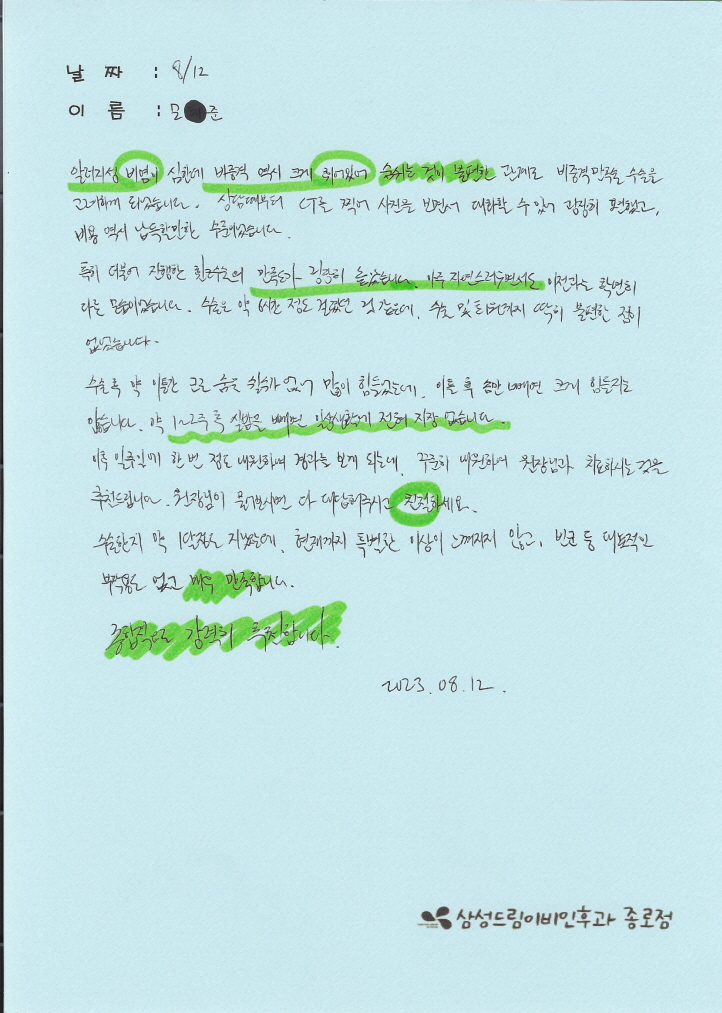 날 짜 : 8/12
이 름 : 모 준
알러지성 비염이 심한데 비중격 역시 크게 휘어있어 숨쉬는 것이 불편한 관계로 비중격만곡증 수술을
하게 되었습니다. 상담때부터 CT를 찍어 사진을 보면서 대화할 수 있어 굉장히 편했고,
비용 역시 납득할만한 수준이었습니다.
특히 더불어 진행한 만족도가 굉장히 높았습니다. 아주 자연스러우면서도 이전과는 확연히
다른 모습이었습니다. 수술은 약 시간 정도 걸렸던 것 같은데, 수술 및 퇴원까지 딱히 불편한 점이
없었습니다.
수술 후 약 이틀간 코로 숨을 쉴수가 없어 많이 힘들었는데, 이틀 후 솜만 빼면 크게 힘들지는
않습니다. 약 1~2주 후 실밥을 빼면 일상생활에 전혀 지장 없습니다.
이후 일주일에 한 번 정도 내원하여 경과를 보게 되는데, 꾸준히 내원하여 원장님과 치료하시는 것을
추천드립니다. 원장님이 물어보시면 다 대답해주시고 친절하세요.
수술한지 약 1달정도 지났는데, 현재까지 특별한 이상이 느껴지지 않고, 빈코 등 대표적인
부작용도 없고 매우 만족합니다.
종합적으로 강력히 추천합니다.
2023.08.12.
삼성드림이비인후과 종로점